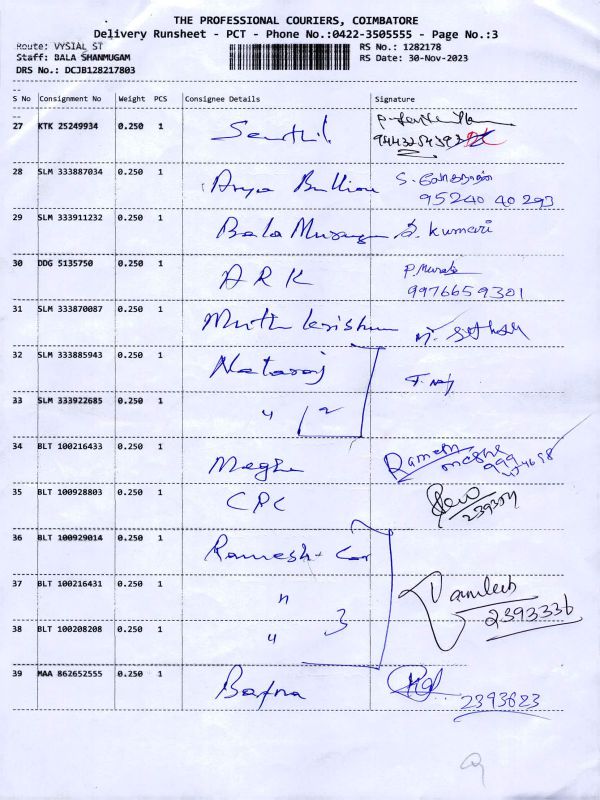 THE PROFESSIONAL COURIERS, COIMBATORE
Delivery Runsheet - PCT - Phone No.:0422-3505555 - Page No.:3
Route: VYSIAL ST RS No.: 1282178
Staff: BALA SHANMUGAM RS Date: 30-Nov-2023
DRS No.: DCJB128217803
S No Consignment No Weight PCS Consignee Details Signature
27 KTK 25249934 0.250 1 Senthil
28 SLM 333887034 0.250 1 Arya Bullion 95240 40 293
29 SLM 333911232 0.250 1 Bala Murugan S. Kumari
30 DDG 5135750 0.250 1 A R K P. Murali
9976659301
31 SLM 333870087 0.250 1 Muthu Krishna
32 SLM 333885943 0.250 1 Nataraj
33 SLM 333922685 0.250 1 " 2
34 BLT 100216433 0.250 1 Megha Ramesh
35 BLT 100928803 0.250 1 CPC
36 BLT 100929014 0.250 1 Ramesh
37 BLT 100216431 0.250 1 " 2393336
38 BLT 100208208 0.250 1 " 3
39 MAA 862652555 0.250 1 Bafna 2393623